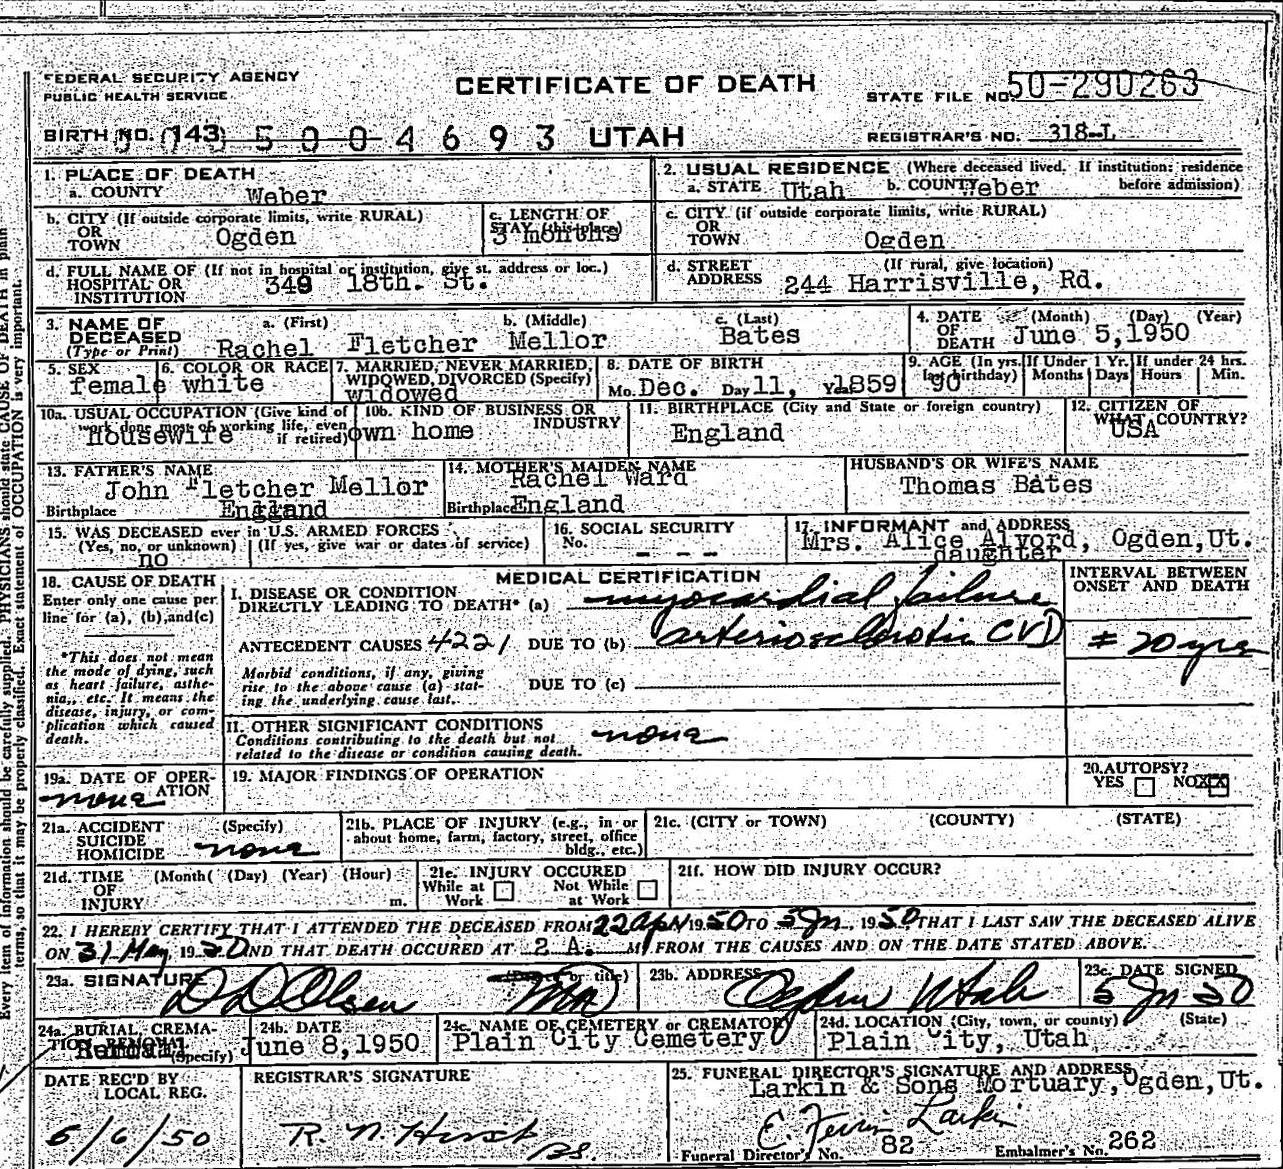 FEDERAL SECURITY AGENCY
PUBLIC HEALTH SERVICE
CERTIFICATE OF DEATH
STATE FILE NO. 50-290263
BIRTH NO. (143) 5 0 0 4 6 9 3 UTAH
REGISTRAR'S NO. 318-L
1. PLACE OF DEATH
a. COUNTY Weber
2. USUAL RESIDENCE (Where deceased lived. If institution: residence before admission)
a. STATE Utah b. COUNTY Weber
b. CITY (If outside corporate limits, write RURAL)
OR TOWN Ogden
c. LENGTH OF STAY (this place)
3 months
c. CITY (if outside corporate limits, write RURAL)
OR TOWN Ogden
d. FULL NAME OF (If not in hospital or institution, give st. address or loc.)
HOSPITAL OR INSTITUTION 349 18th. St.
d. STREET ADDRESS (If rural, give location)
244 Harrisville, Rd.
3. NAME OF DECEASED (Type or Print)
a. (First) b. (Middle) c. (Last)
Rachel Fletcher Mellor Bates
4. DATE OF DEATH (Month) (Day) (Year)
June 5,1950
5. SEX
female
6. COLOR OR RACE
white
7. MARRIED, NEVER MARRIED, WIDOWED, DIVORCED (Specify)
widowed
8. DATE OF BIRTH
Mo. Dec. Day 11, Yr. 1859
9. AGE (In yrs. last birthday)
90
If Under 1 Yr. Months Days
If under 24 hrs. Hours Min.
10a. USUAL OCCUPATION (Give kind of work done most of working life, even if retired)
housewife
10b. KIND OF BUSINESS OR INDUSTRY
own home
11. BIRTHPLACE (City and State or foreign country)
England
12. CITIZEN OF WHAT COUNTRY?
USA
13. FATHER'S NAME
John Fletcher Mellor
Birthplace England
14. MOTHER'S MAIDEN NAME
Rachel Ward
Birthplace England
HUSBAND'S OR WIFE'S NAME
Thomas Bates
15. WAS DECEASED ever in U.S. ARMED FORCES
(Yes, no, or unknown) (If yes, give war or dates of service)
no
16. SOCIAL SECURITY
No. - - -
17. INFORMANT and ADDRESS
Mrs. Alice Alvord, Ogden,Ut.
daughter
18. CAUSE OF DEATH
Enter only one cause per
line for (a), (b), and (c)
*This does not mean
the mode of dying, such
as heart failure, asthe-
nia, etc. It means the
disease, injury, or com-
plication which caused
death.
MEDICAL CERTIFICATION
I. DISEASE OR CONDITION
DIRECTLY LEADING TO DEATH* (a) myocardial failure
ANTECEDENT CAUSES 4221 DUE TO (b) arteriosclerotic CVD
Morbid conditions, if any, giving
rise to the above cause (a) stat-
ing the underlying cause last.
DUE TO (c)
II. OTHER SIGNIFICANT CONDITIONS
Conditions contributing to the death but not
related to the disease or condition causing death.
none
INTERVAL BETWEEN
ONSET AND DEATH
± 20 yrs
19a. DATE OF OPER-
ATION
none
19. MAJOR FINDINGS OF OPERATION
20. AUTOPSY?
YES NO XX
21a. ACCIDENT (Specify)
SUICIDE
HOMICIDE none
21b. PLACE OF INJURY (e.g., in or
about home, farm, factory, street, office
bldg., etc.)
21c. (CITY or TOWN) (COUNTY) (STATE)
21d. TIME (Month( (Day) (Year) (Hour)
OF
INJURY m.
21e. INJURY OCCURED
While at Work Not While at Work
21f. HOW DID INJURY OCCUR?
22. I HEREBY CERTIFY THAT I ATTENDED THE DECEASED FROM 22 Apr 1950 TO 5 Jn, 1950 THAT I LAST SAW THE DECEASED ALIVE
ON 31 May, 1950 AND THAT DEATH OCCURED AT 2 A. M, FROM THE CAUSES AND ON THE DATE STATED ABOVE.
23a. SIGNATURE (or title)
D D Olsen MD
23b. ADDRESS
Ogden Utah
23c. DATE SIGNED
5 Jn 50
24a. BURIAL, CREMA-
TION, REMOVAL (Specify)
24b. DATE
June 8,1950
24c. NAME OF CEMETERY or CREMATORY
Plain City Cemetery
24d. LOCATION (City, town, or county) (State)
Plain City, Utah
DATE REC'D BY
LOCAL REG.
6/6/50
REGISTRAR'S SIGNATURE
R. N. Hirst
25. FUNERAL DIRECTOR'S SIGNATURE AND ADDRESS
Larkin & Sons Mortuary, Ogden,Ut.
Larkin
Funeral Director's No. 82 Embalmer's No. 262
Every item of information should be carefully supplied. PHYSICIANS should state CAUSE OF DEATH in plain
terms, so that it may be properly classified. Exact statement of OCCUPATION is very important.